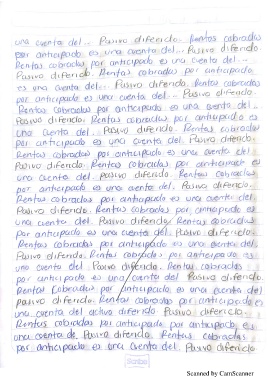 una cuenta del... Pasivo diferido. Rentas cobradas
por anticipado es una cuenta del... Pasivo diferido.
Rentas cobradas por anticipado es una cuenta del...
Pasivo diferido. Rentas cobradas por anticipado
es una cuenta del... Pasivo diferido. Rentas cobradas
por anticipado es una cuenta del... Pasivo diferido.
Rentas cobradas por anticipado es una cuenta del...
Pasivo diferido. Rentas cobradas por anticipado es
una cuenta del... Pasivo diferido. Rentas cobradas
por anticipado es una cuenta del Pasivo diferido.
Rentas cobradas por anticipado es una cuenta del
Pasivo diferido. Rentas cobradas por anticipado es
una cuenta del pasivo diferido. Rentas cobradas
por anticipado es una cuenta del Pasivo diferido.
Rentas cobradas por anticipado es una cuenta del
Pasivo diferido. Rentas cobradas por anticipado es
una cuenta del Pasivo diferido. Rentas cobradas
por anticipado es una cuenta del Pasivo diferido.
Rentas cobradas por anticipado es una cuenta del
Pasivo diferido. Rentas cobradas por anticipado es
una cuenta del Pasivo diferido. Rentas cobradas
por anticipado es una cuenta del Pasivo diferido.
Rentas cobradas por anticipado es una cuenta del
pasivo diferido. Rentas cobradas por anticipado es
una cuenta del activo diferido Pasivo diferido.
Rentas cobradas por anticipado por anticipado es
una cuenta de Pasivo diferido. Rentas cobradas
por anticipado es una cuenta del Pasivo diferido
Scribe
Scanned by CamScanner